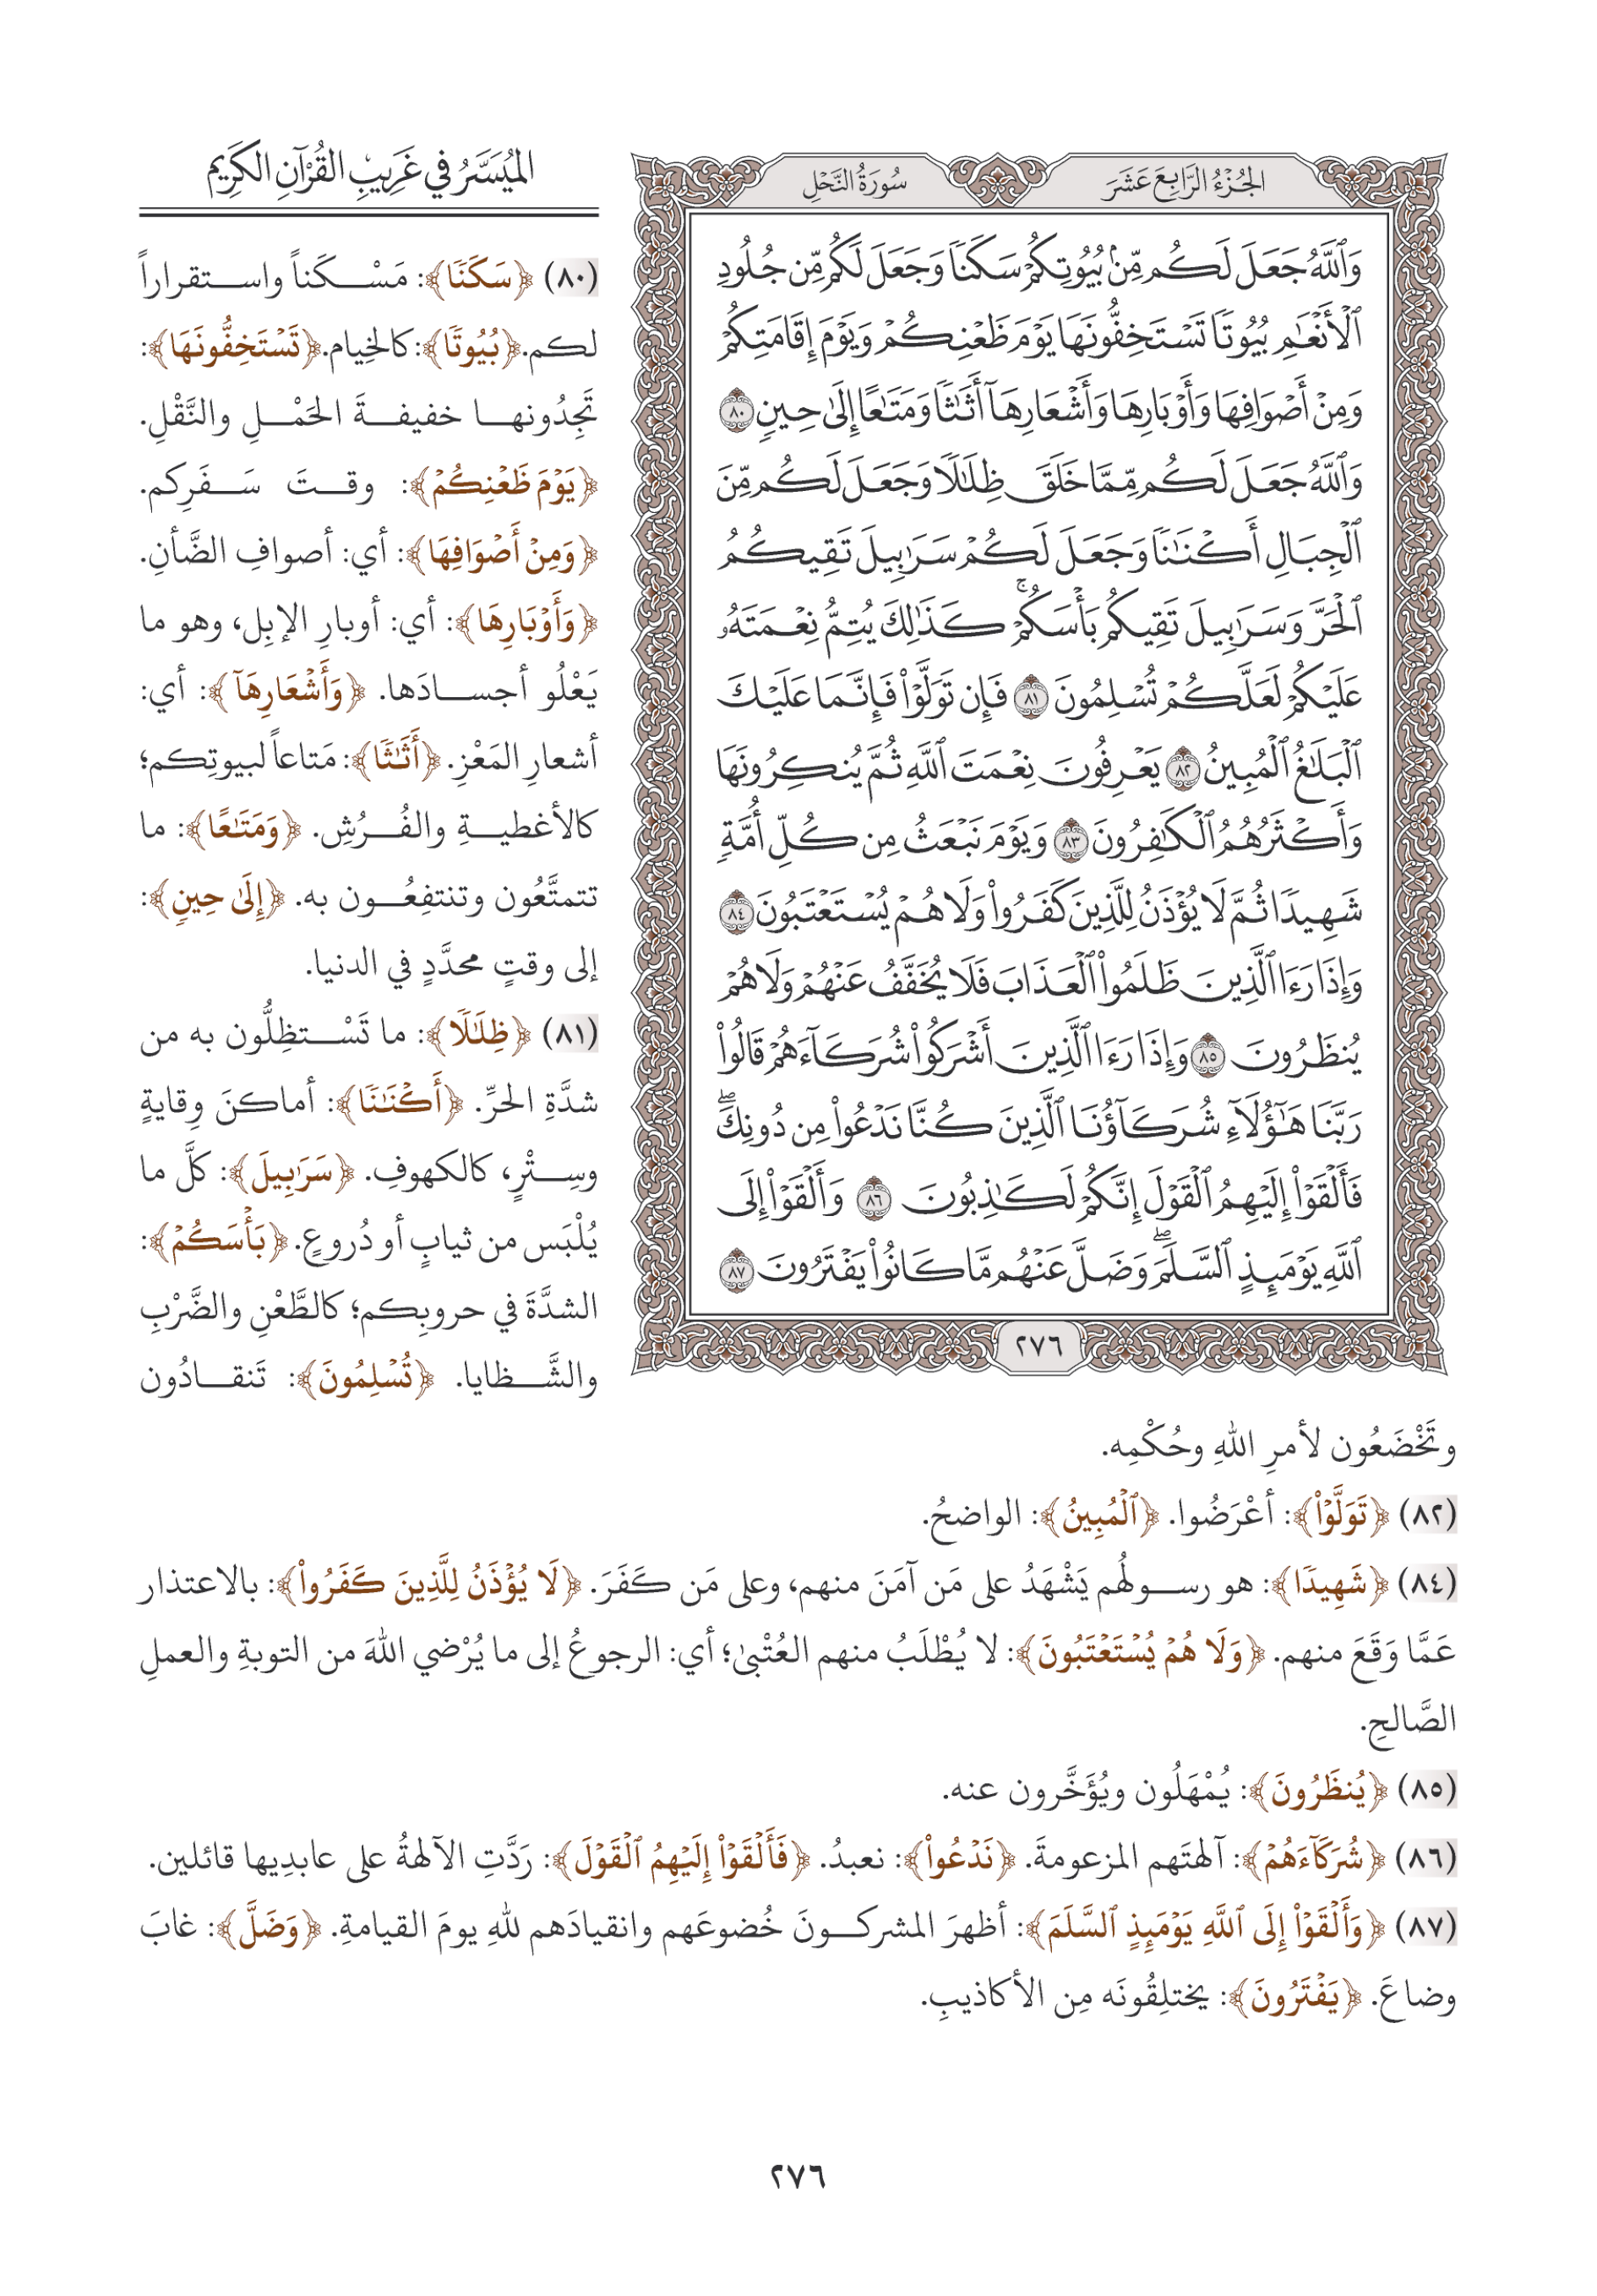 الجُزْءُ الرَّابِعَ عَشَرَ
سُورَةُ النَّحْلِ
وَٱللَّهُ جَعَلَ لَكُم مِّنۢ بُيُوتِكُمْ سَكَنًا وَجَعَلَ لَكُم مِّن جُلُودِ
ٱلْأَنْعَٰمِ بُيُوتًا تَسْتَخِفُّونَهَا يَوْمَ ظَعْنِكُمْ وَيَوْمَ إِقَامَتِكُمْ
وَمِنْ أَصْوَافِهَا وَأَوْبَارِهَا وَأَشْعَارِهَآ أَثَٰثًا وَمَتَٰعًا إِلَىٰ حِينٍ ٨٠
وَٱللَّهُ جَعَلَ لَكُم مِّمَّا خَلَقَ ظِلَٰلًا وَجَعَلَ لَكُم مِّنَ
ٱلْجِبَالِ أَكْنَٰنًا وَجَعَلَ لَكُمْ سَرَٰبِيلَ تَقِيكُمُ
ٱلْحَرَّ وَسَرَٰبِيلَ تَقِيكُم بَأْسَكُمْ ۚ كَذَٰلِكَ يُتِمُّ نِعْمَتَهُۥ
عَلَيْكُمْ لَعَلَّكُمْ تُسْلِمُونَ ٨١ فَإِن تَوَلَّوْا۟ فَإِنَّمَا عَلَيْكَ
ٱلْبَلَٰغُ ٱلْمُبِينُ ٨٢ يَعْرِفُونَ نِعْمَتَ ٱللَّهِ ثُمَّ يُنكِرُونَهَا
وَأَكْثَرُهُمُ ٱلْكَٰفِرُونَ ٨٣ وَيَوْمَ نَبْعَثُ مِن كُلِّ أُمَّةٍ
شَهِيدًا ثُمَّ لَا يُؤْذَنُ لِلَّذِينَ كَفَرُوا۟ وَلَا هُمْ يُسْتَعْتَبُونَ ٨٤
وَإِذَا رَءَا ٱلَّذِينَ ظَلَمُوا۟ ٱلْعَذَابَ فَلَا يُخَفَّفُ عَنْهُمْ وَلَا هُمْ
يُنظَرُونَ ٨٥ وَإِذَا رَءَا ٱلَّذِينَ أَشْرَكُوا۟ شُرَكَآءَهُمْ قَالُوا۟
رَبَّنَا هَٰٓؤُلَآءِ شُرَكَآؤُنَا ٱلَّذِينَ كُنَّا نَدْعُوا۟ مِن دُونِكَ ۖ
فَأَلْقَوْا۟ إِلَيْهِمُ ٱلْقَوْلَ إِنَّكُمْ لَكَٰذِبُونَ ٨٦ وَأَلْقَوْا۟ إِلَى
ٱللَّهِ يَوْمَئِذٍ ٱلسَّلَمَ ۖ وَضَلَّ عَنْهُم مَّا كَانُوا۟ يَفْتَرُونَ ٨٧
٢٧٦
المُيَسَّرُ في غَرِيبِ القُرْآنِ الكَرِيم
(٨٠) ﴿سَكَنًا﴾: مَسْكَناً واستقراراً
لكم. ﴿بُيُوتًا﴾: كالخِيام. ﴿تَسْتَخِفُّونَهَا﴾:
تَجِدُونها خفيفةَ الحَمْلِ والنَّقْلِ.
﴿يَوْمَ ظَعْنِكُمْ﴾: وقتَ سَفَرِكم.
﴿وَمِنْ أَصْوَافِهَا﴾: أي: أصوافِ الضَّأنِ.
﴿وَأَوْبَارِهَا﴾: أي: أوبارِ الإبِل، وهو ما
يَعْلُو أجسادَها. ﴿وَأَشْعَارِهَآ﴾: أي:
أشعارِ المَعْزِ. ﴿أَثَٰثًا﴾: مَتاعاً لبيوتِكم؛
كالأغطيةِ والفُرُشِ. ﴿وَمَتَٰعًا﴾: ما
تتمتَّعُون وتنتفِعُون به. ﴿إِلَىٰ حِينٍ﴾:
إلى وقتٍ محدَّدٍ في الدنيا.
(٨١) ﴿ظِلَٰلًا﴾: ما تَسْتظِلُّون به من
شدَّةِ الحرِّ. ﴿أَكْنَٰنًا﴾: أماكنَ وِقايةٍ
وسِتْرٍ، كالكهوفِ. ﴿سَرَٰبِيلَ﴾: كلَّ ما
يُلْبَس من ثيابٍ أو دُروعٍ. ﴿بَأْسَكُمْ﴾:
الشدَّةَ في حروبِكم؛ كالطَّعْنِ والضَّرْبِ
والشَّظايا. ﴿تُسْلِمُونَ﴾: تَنقادُون
وتَخْضَعُون لأمرِ اللهِ وحُكْمِه.
(٨٢) ﴿تَوَلَّوْا۟﴾: أعْرَضُوا. ﴿ٱلْمُبِينُ﴾: الواضحُ.
(٨٤) ﴿شَهِيدًا﴾: هو رسولُهم يَشْهَدُ على مَن آمَنَ منهم، وعلى مَن كَفَرَ. ﴿لَا يُؤْذَنُ لِلَّذِينَ كَفَرُوا۟﴾: بالاعتذار
عَمَّا وَقَعَ منهم. ﴿وَلَا هُمْ يُسْتَعْتَبُونَ﴾: لا يُطْلَبُ منهم العُتْبىٰ؛ أي: الرجوعُ إلى ما يُرْضي اللهَ من التوبةِ والعملِ
الصَّالحِ.
(٨٥) ﴿يُنظَرُونَ﴾: يُمْهَلُون ويُؤَخَّرون عنه.
(٨٦) ﴿شُرَكَآءَهُمْ﴾: آلهتَهم المزعومةَ. ﴿نَدْعُوا۟﴾: نعبدُ. ﴿فَأَلْقَوْا۟ إِلَيْهِمُ ٱلْقَوْلَ﴾: رَدَّتِ الآلهةُ على عابدِيها قائلين.
(٨٧) ﴿وَأَلْقَوْا۟ إِلَى ٱللَّهِ يَوْمَئِذٍ ٱلسَّلَمَ﴾: أظهرَ المشركونَ خُضوعَهم وانقيادَهم للهِ يومَ القيامةِ. ﴿وَضَلَّ﴾: غابَ
وضاعَ. ﴿يَفْتَرُونَ﴾: يختلِقُونَه مِن الأكاذيبِ.
٢٧٦